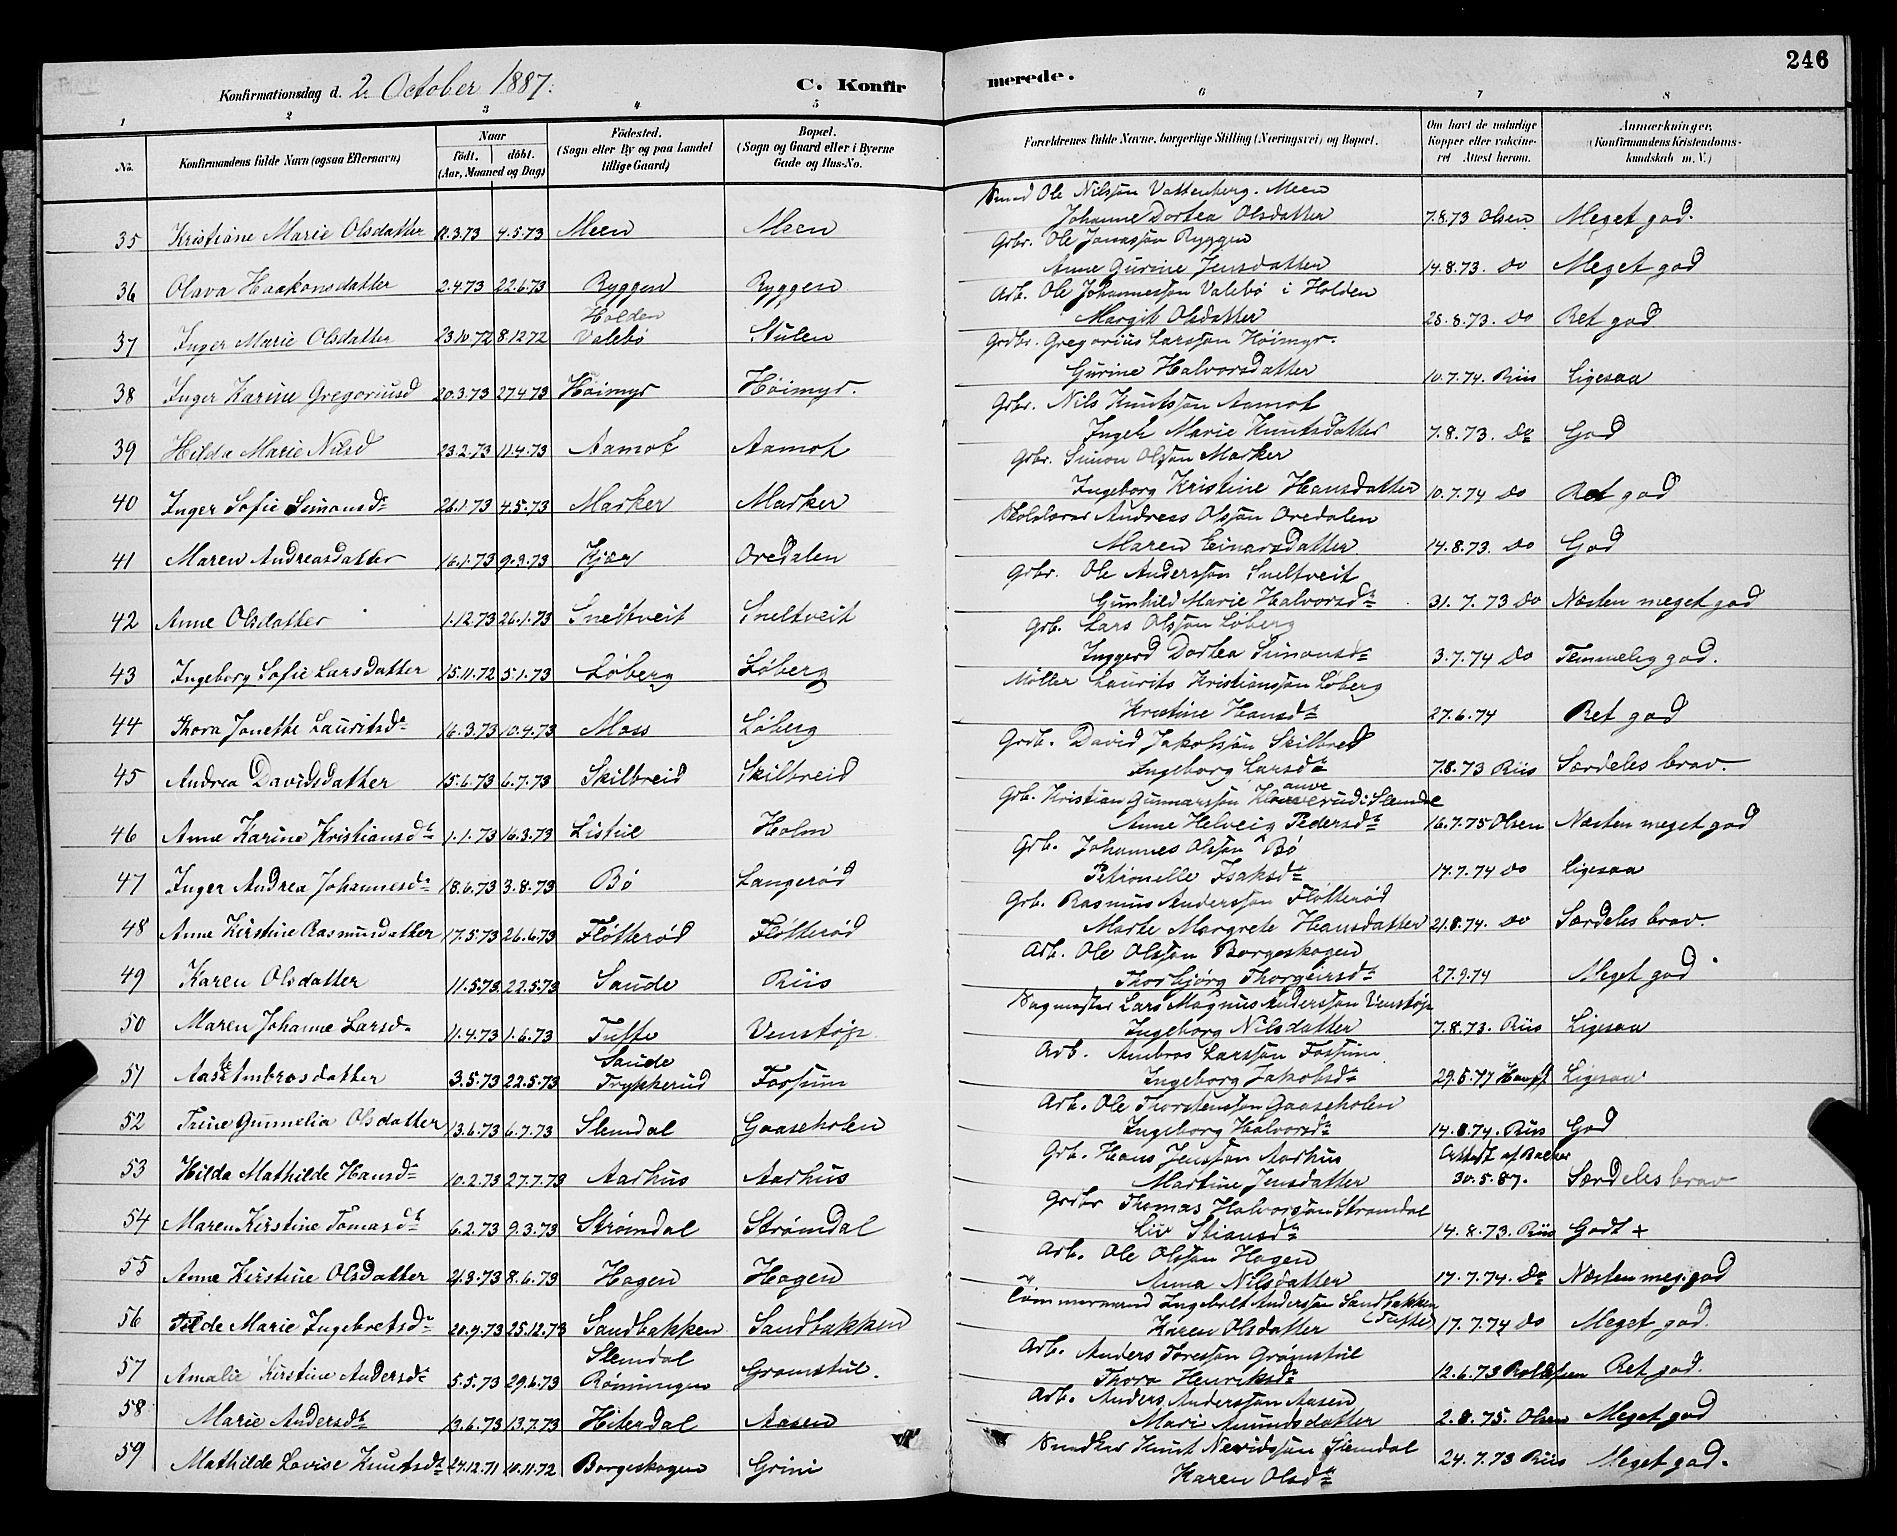 246
Konfirmationsdag d. 2. October 1887.
C. Konfirmerede.
1 2 3 4 5 6 7 8
No. Konfirmandens fulde Navn (ogsaa Efternavn) Naar födt. döbt. (Aar, Maaned og Dag) Födested. (Sogn eller By og paa Landet tillige Gaard) Bopæl. (Sogn og Gaard eller i Byerne Gade og Hus-No. Forældrenes fulde Navne, borgerlige Stilling (Næringsvei) og Bopæl. Om havt de naturlige Kopper eller vakcineret Attest herom. Anmærkninger. (Konfirmandens Kristendomskundskab m. V.)
Smed Ole Nilssøn Vattenberg. Meen
35 Kristiane Marie Olsdatter 12.3.73 4.5.73 Meen Meen Johanne Dortea Olsdatter 7.8.73 Olsen Meget god.
Grbr. Ole Jonassøn Ryggen
36 Olava Haakonsdatter 2.4.73 22.6.73 Ryggen Ryggen Anne Gurine Jensdatter 14.8.73. Do Meget god
Arb. Ole Johannessøn Valebø i Holden
37 Inger Marie Olsdatter 23.10.72 8.12.72 Holden Valebø Stulen Margit Olsdatter 28.8.73. Do Ret god
Grdbr. Gregorius Larssøn Høimyr.
38 Inger Karine Gregoriusd 20.3.73 27.4.73 Høimyr Høimyr. Gurine Halvorsdatter 10.7.74. Riis Ligesaa
Grbr. Nils Knutssøn Aamot
39 Hilda Marie Nilsd 23.2.73 11.4.73 Aamot Aamot Inger Marie Knutsdatter 7.8.73. Do God
Grbr. Simon Olssøn Marker
40 Inger Sofie Simonsdr 26.1.73 4.5.73 Marker Marker Ingeborg Kristine Hansdatter 10.7.74 Do Ret god
Skolelærer Andreas Olssøn Oredalen
41 Maren Andreasdatter 16.1.73 9.3.73 Kjær Oredalen Maren Einarsdatter 14.8.73. Do God
Grbr. Ole Anderssøn Sneltveit
42 Anne Olsdatter 1.12.73 26.1.73 Sneltveit Sneltveit Gunhild Marie Halvorsdr 31.7.73 Do Næsten meget god
Grb. Lars Olssøn Løberg
43 Ingeborg Sofie Larsdatter 15.11.72 5.1.73 Løberg Løberg Inggerd Dortea Simonsdr 3.7.74 Do Temmelig god.
Møller Laurits Kristianssøn Løberg
44 Thora Jonette Lauritsdr 16.3.73 10.4.73 Moss Løberg Kristine Hansdr 27.6.74 Ret god
Grdb. David Jakobssøn Skilbred
45 Andrea Davidsdatter 15.6.73 6.7.73 Skilbreid Skilbreid Ingeborg Larsdr 7.8.73 Riis Særdeles brav.
Grb. Kristian Gunnarssøn Slemdal
46 Anne Karine Kristiansdr 1.1.73 16.3.73 Listul Holm Anne Helveig Pedersdr 16.7.75 Olsen Næsten meget god
Grb. Johannes Olssøn Bø
47 Inger Andrea Johannesdr 18.6.73 3.8.73 Bø Langerød Petronelle Isaksdr 17.7.74 Do Ligesaa
Grb. Rasmus Anderssøn Fløtterød
48 Anne Kirstine Rasmusdatter 17.5.73 26.6.73 Fløtterød Fløtterød Marte Margrete Hansdatter 21.8.74. Do Særdeles brav.
Arb. Ole Olssøn Borgeskogen
49 Karen Olsdatter 11.5.73 22.5.73 Saude Riis Thorbjörg Thorgeirsdr 27.9.74 Meget god
Sagmester Lars Magnus Anderssøn Venstøp
50 Maren Johanne Larsdr 11.4.73 1.6.73 Tufte Venstøp Ingeborg Nilsdatter 7.8.73. Riis Ligesaa
Arb. Ambros Larssøn Fossum
51 Aase Ambrosdatter 3.5.73 22.5.73 Saude Trykkerud Fossum Ingeborg Jakobsdr Ligesaa
Arb. Ole Thorstenssøn Gaaseholen
52 Trine Gunnelia Olsdatter 13.6.73 6.7.73 Slemdal Gaaseholen Ingeborg Halvorsdr 14.8.74. Riis God
Grb. Hans Jenssøn Aarhus Attest af Backer
53 Hilda Mathilde Hansdr 10.2.73 27.7.73 Aarhus Aarhus Martine Jensdatter 30.5.87. Særdeles brav
Grdbr Thomas Halvorssøn Strømdal
54 Maren Kirstine Tomasdr 6.2.73 9.3.73 Strømdal Strømdal Liv Stiansdr 14.8.73. Riis Godt +
Arb. Ole Olssøn Hagen
55 Anne Kirstine Olsdatter 21.3.73 8.6.73 Hagen Hagen Anna Nilsdatter 17.7.74. Do Næsten meg. god
Tømmermand Ingebret Anderssøn Sandbakken
56 Tilde Marie Ingebretsdr 20.9.73 25.12.73 Sandbakken Sandbakken Karen Olsdatter (Tufte) 17.7.74 Do Meget god.
Arb. Anders Toressøn Grønstul
57 Amalie Kirstine Andersdr 5.5.73 29.6.73 Slemdal Rønningen Gromstul. Thora Henriksdr 12.6.73 Ret god.
Arb. Anders Anderssøn Aasen
58 Marie Andersdr 13.6.73 13.7.73 Hiterdal Aasen Mari Amundsdatter 2.8.75. Olsen Meget god
Snedker Knut Slemdal
59 Mathilde Lovise Knutsdr 27.12.71 10.11.72 Borgeskogen Grini Karen Olsdr 24.7.73 Riis Meget god.